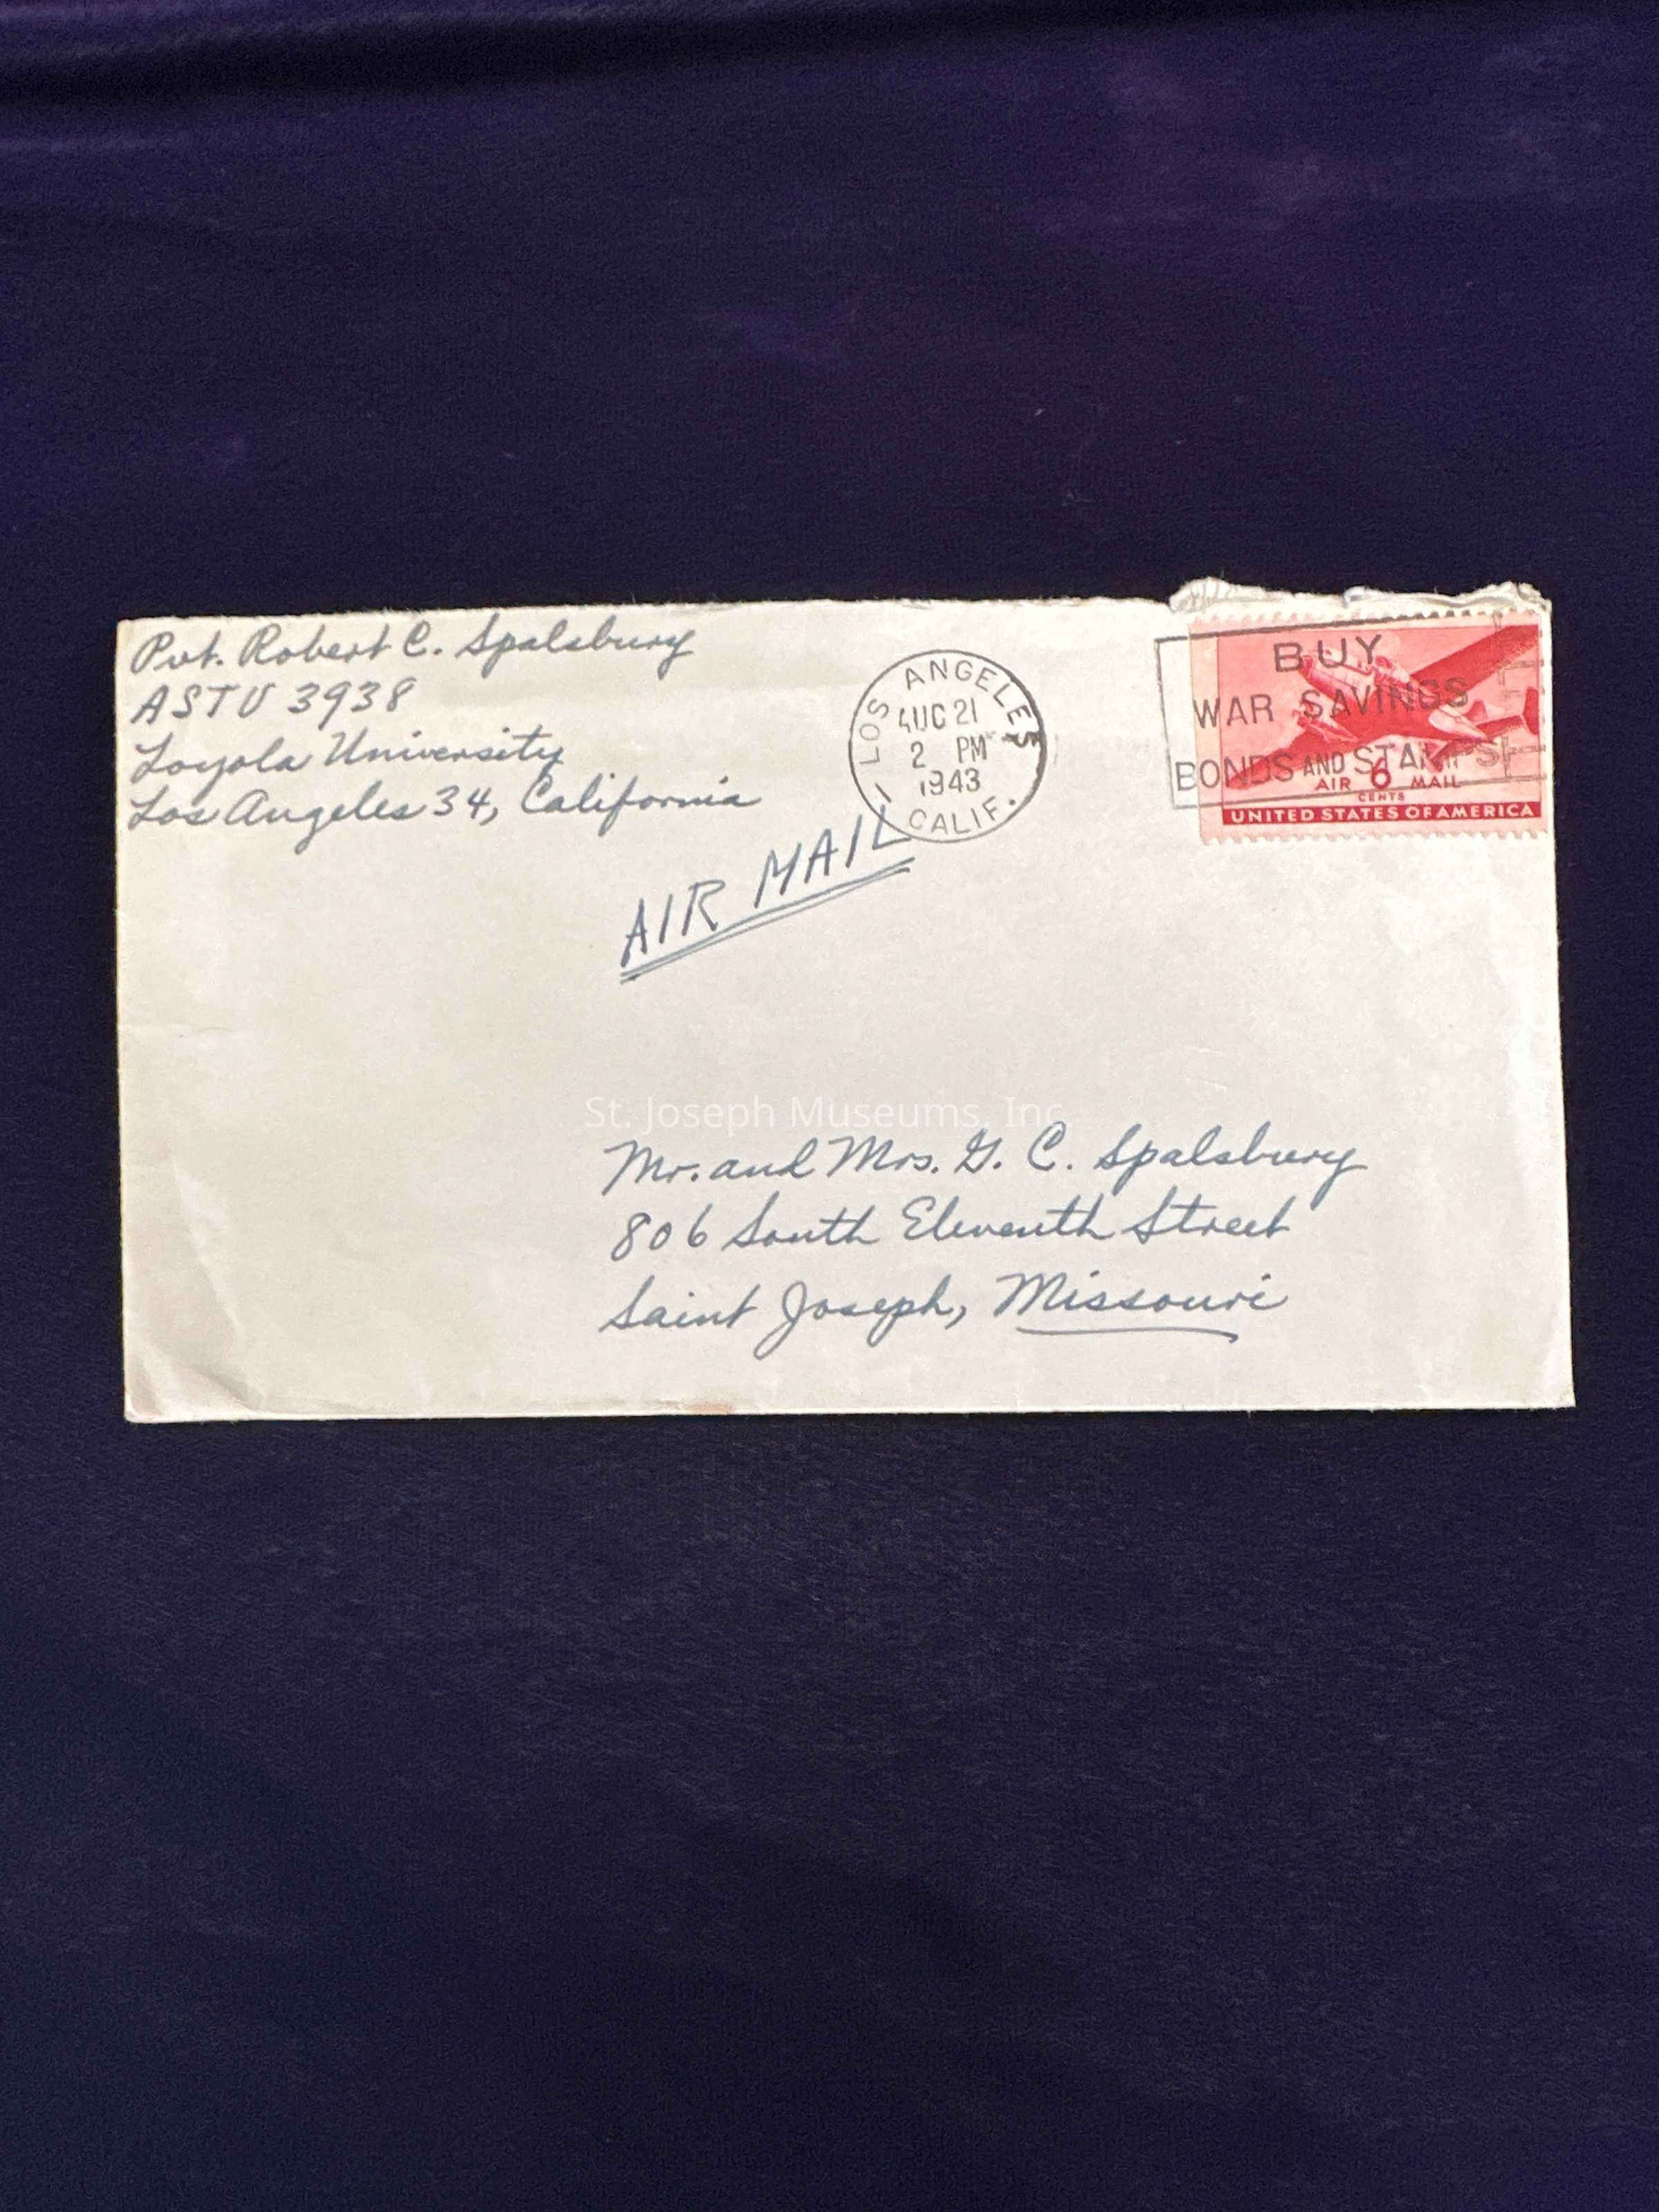 Pvt. Robert C. Spalsbury
ASTU 3938
Loyola University
Los Angeles 34, California
LOS ANGELES
AUG 21
2 PM
1943
CALIF.
BUY
WAR SAVINGS
BONDS AND STAMPS
AIR 6 MAIL
CENTS
UNITED STATES OF AMERICA
AIR MAIL
St. Joseph Museums, Inc.
Mr. and Mrs. G. C. Spalsbury
806 South Eleventh Street
Saint Joseph, Missouri